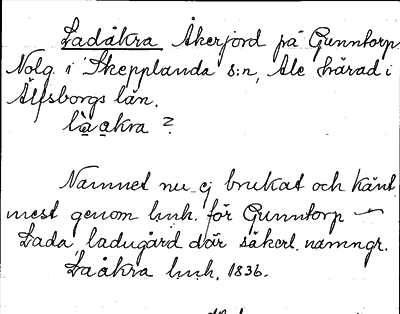 Ladåkra Åkerjord på Gunntorp
Nolg. i Skepplanda s:n, Ale härad i
Älfsborgs län.
là ạkra ?
Namnet nu ej brukat och känt
mest genom hmh. för Gunntorp –
Lada, ladugård där säkerl. namngr.
Laåkra hmh. 1836.